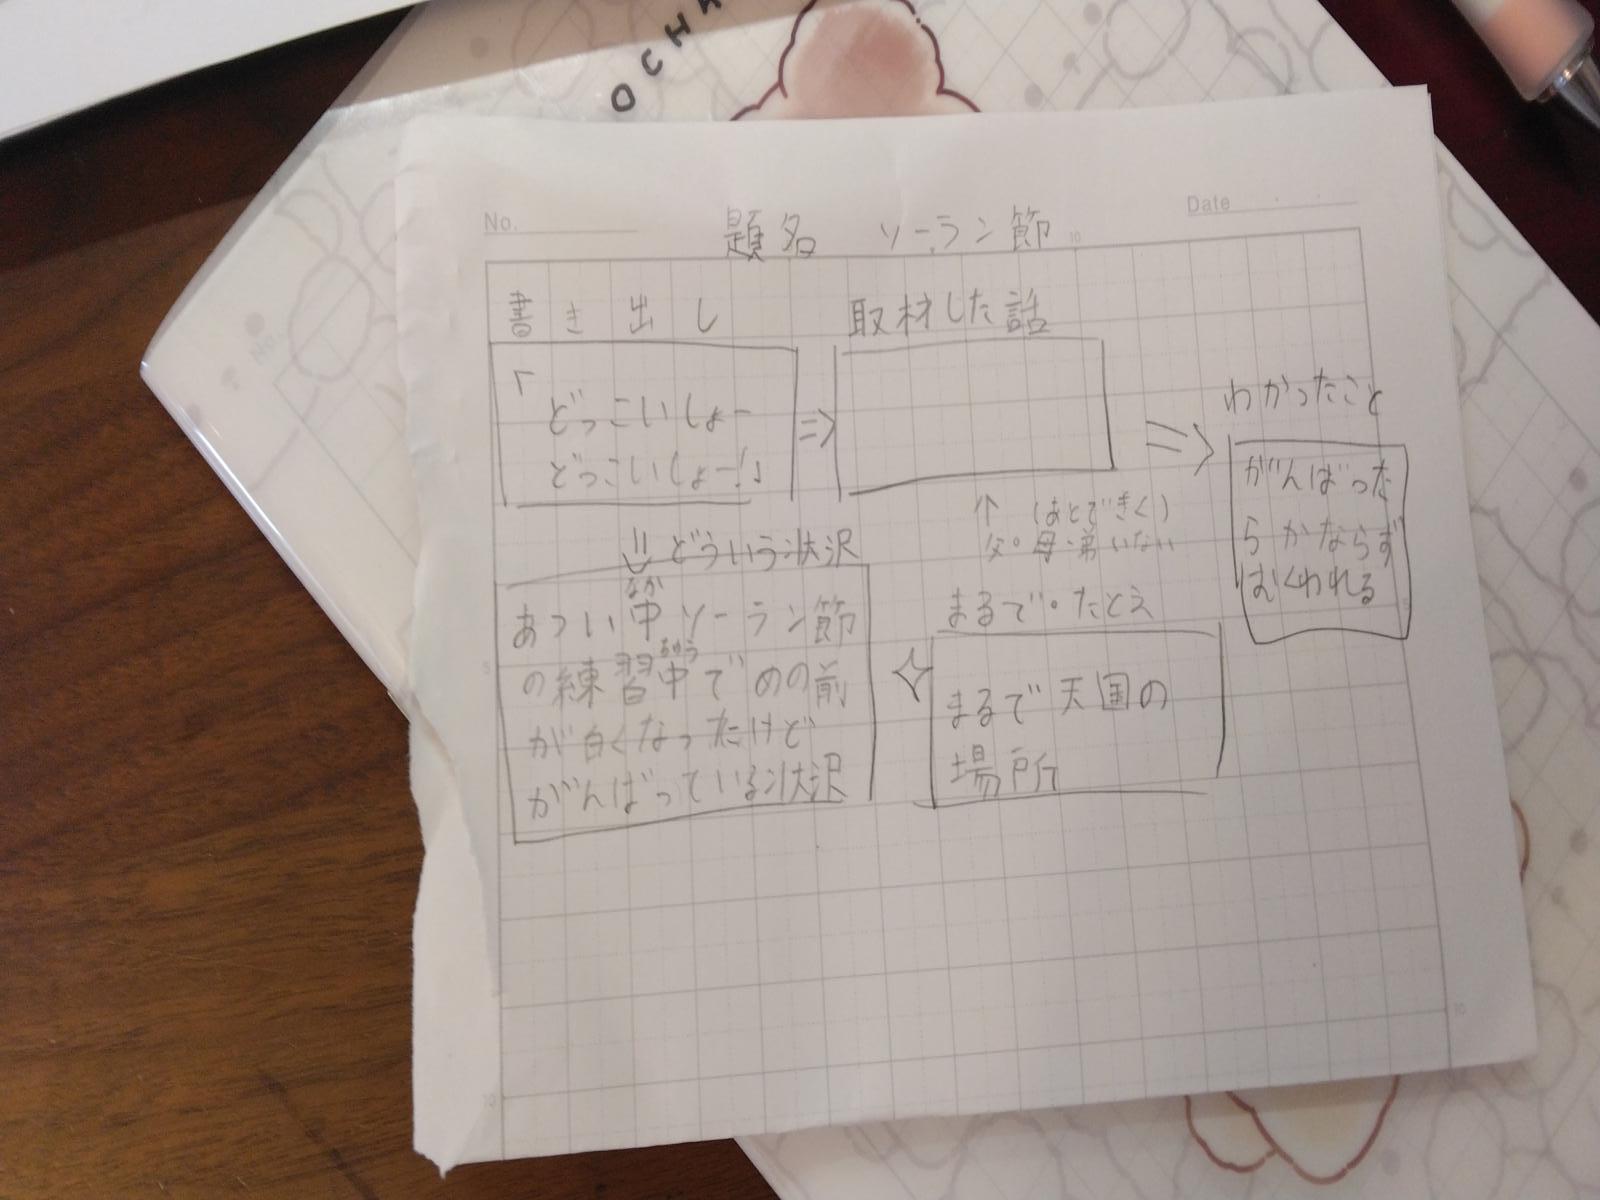 OCHA
No.
Date
題名 ソーラン節
10
書き出し
「どっこいしょー
どっこいしょー!」
⇒
取材した話
⇒
わかったこと
がんばった
らかならず
むくわれる
↑ (あとできく)
父・母・弟いない
⇓ どういう状況
あつい中ソーラン節
なか
の練習中でめの前
ちゅう
が白くなったけど
がんばっている状況
まるで・たとえ
まるで天国の
場所
5
10
10